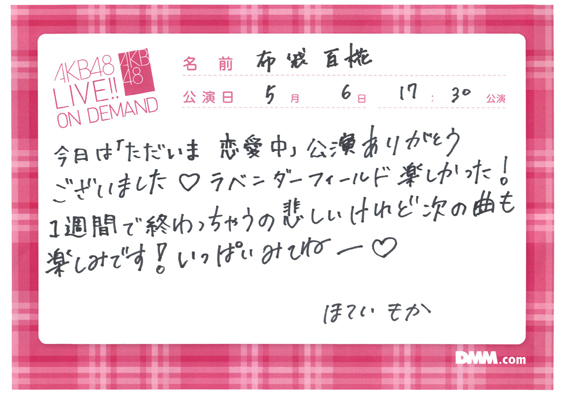 AKB48
LIVE!!
ON DEMAND
AKB
48
名前 布袋百椛
公演日 5月 6日 17:30公演
今日は「ただいま 恋愛中」公演ありがとう
ございました♡ラベンダーフィールド楽しかった!
1週間で終わっちゃうの悲しいけれど次の曲も
楽しみです!いっぱいみてねー♡
ほてい もか
DMM.com